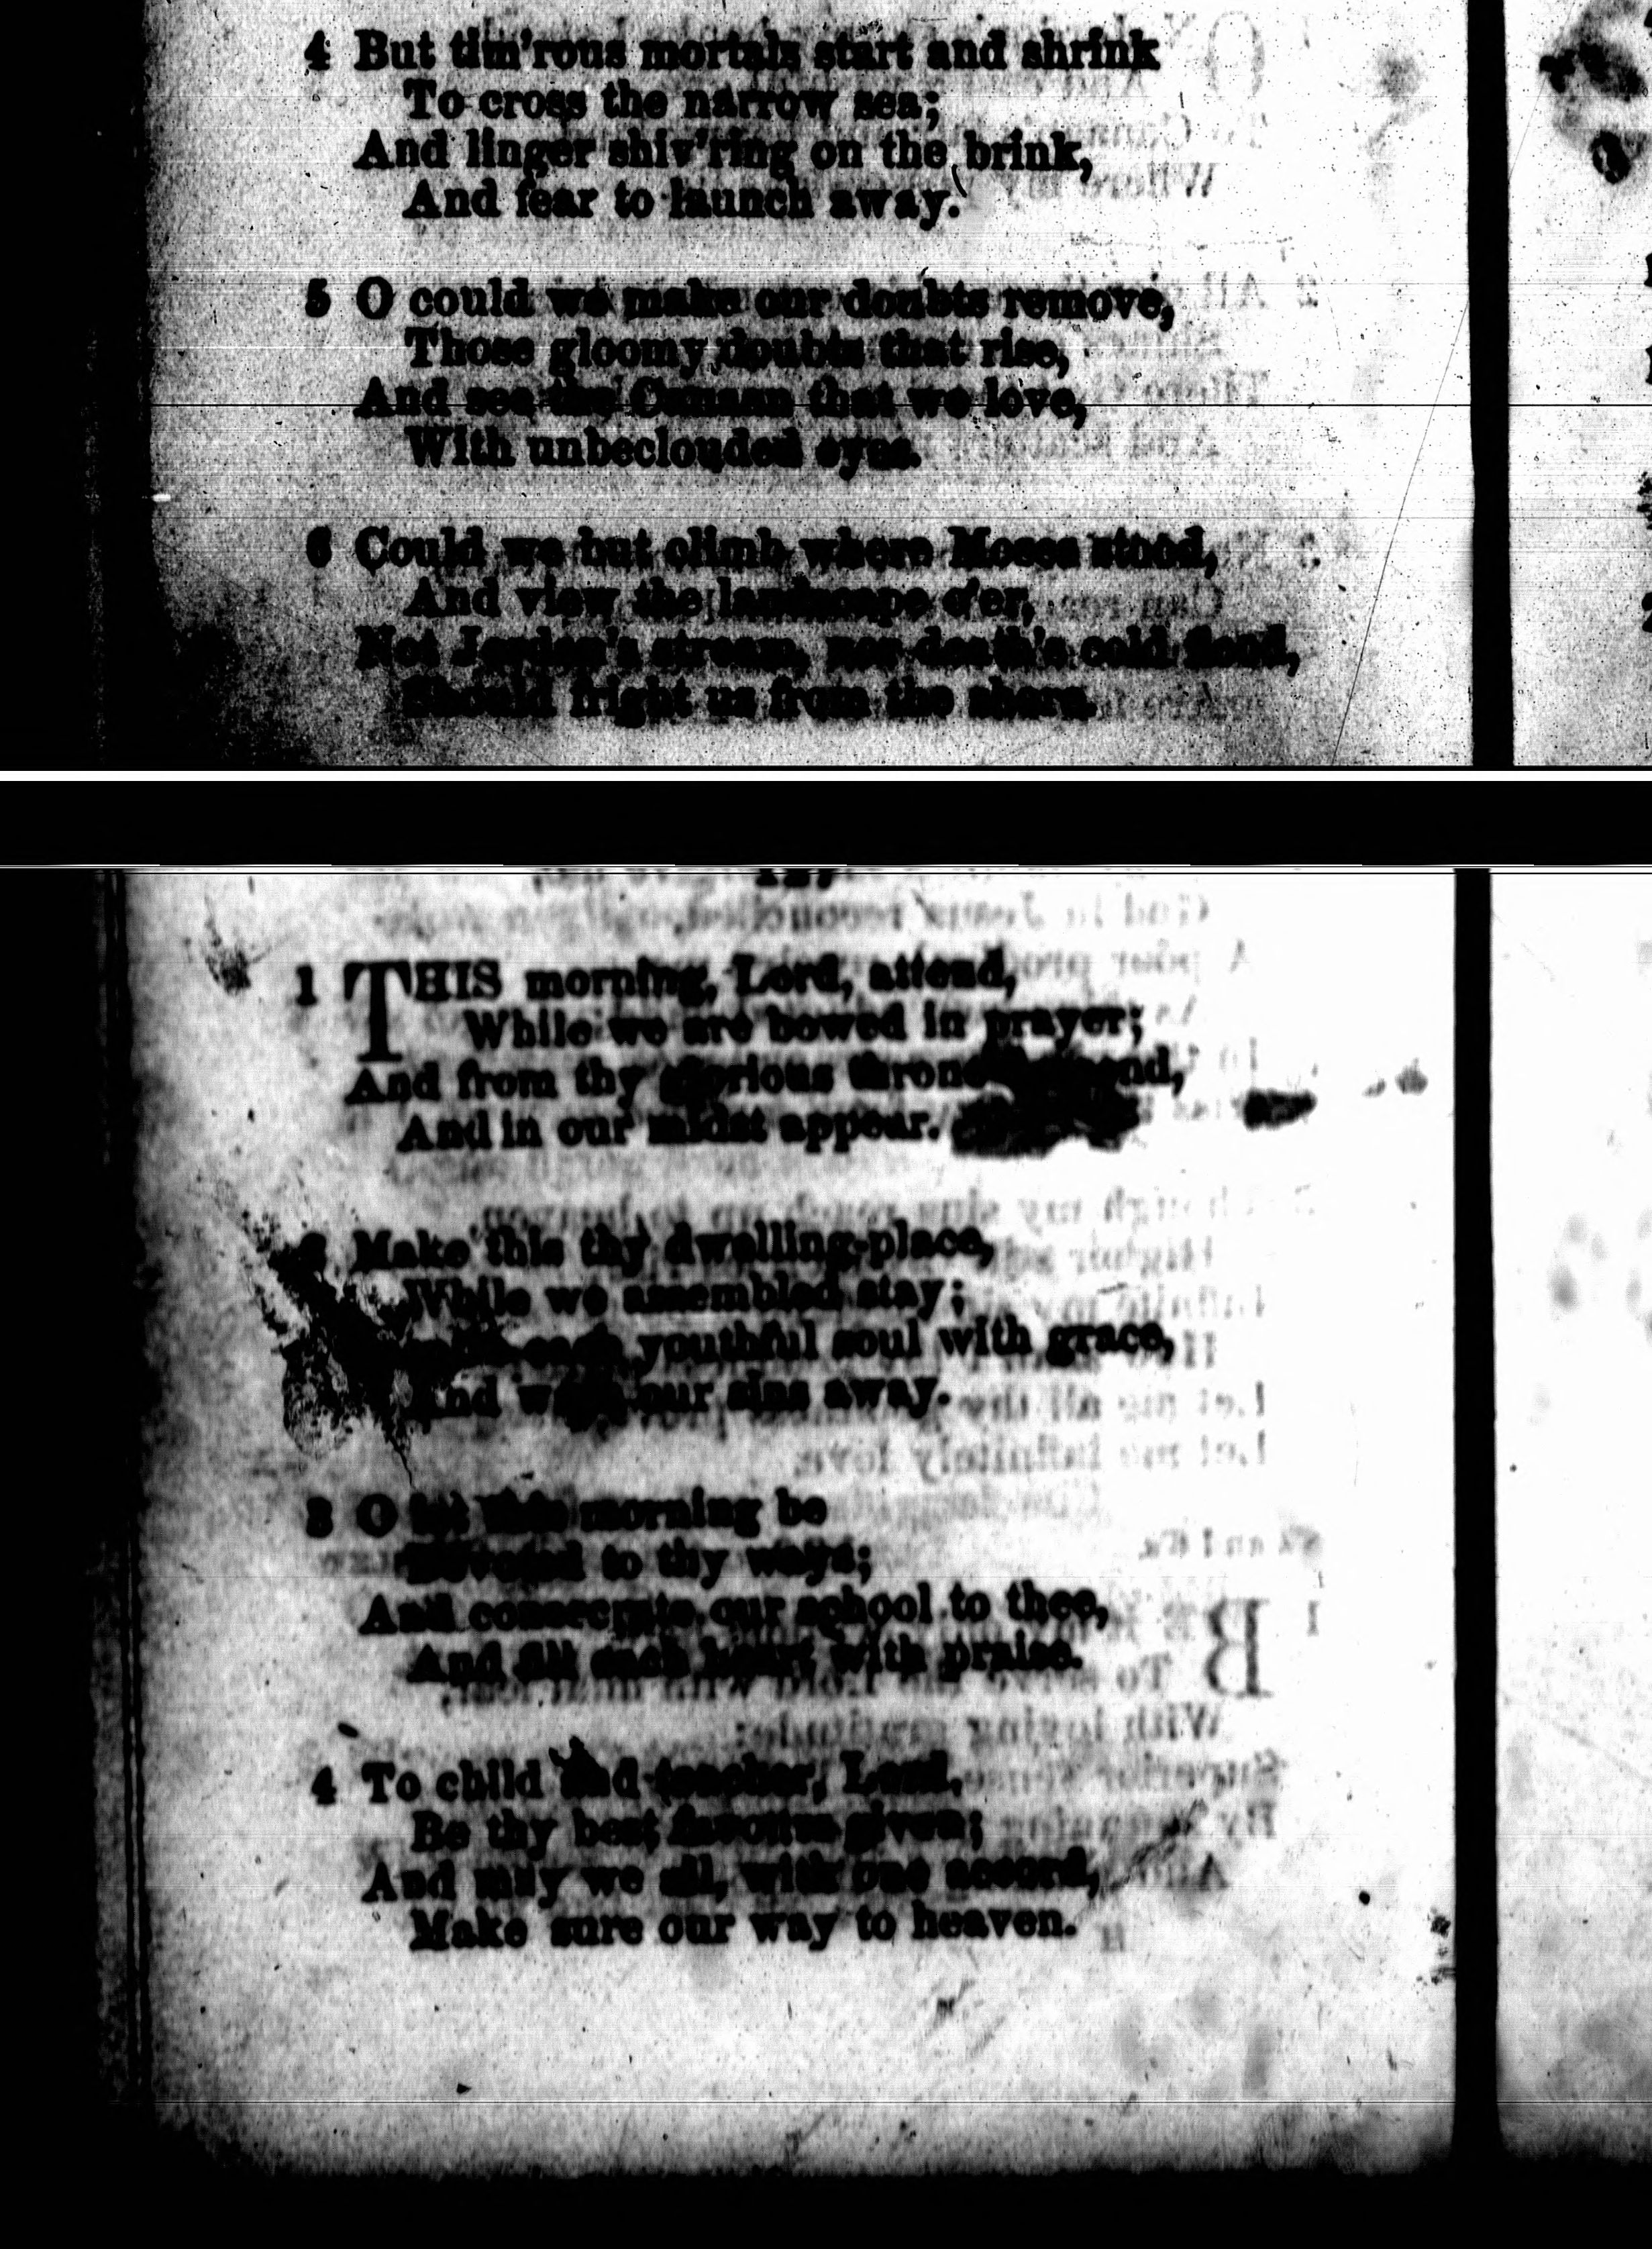 4 But tim'rous mortals start and shrink
To cross the narrow sea;
And linger shiv'ring on the brink,
And fear to launch away.
5 O could we make our doubts remove,
Those gloomy doubts that rise,
And see the Canaan that we love,
With unbeclouded eyes.
6 Could we but climb where Moses stood,
And view the landscape o'er,
Not Jordan's stream, nor death's cold flood,
Should fright us from the shore.
1 THIS morning, Lord, attend,
While we are bowed in prayer;
And from thy glorious throne
And in our midst appear.
Make this thy dwelling-place,
While we assembled stay;
each youthful soul with grace,
And wash our sins away.
3 O let this morning be
Devoted to thy ways;
And consecrate our school to thee,
And fill each heart with praise.
4 To child and teacher, Lord,
Be thy best favours given;
And may we all, with one accord,
Make sure our way to heaven.